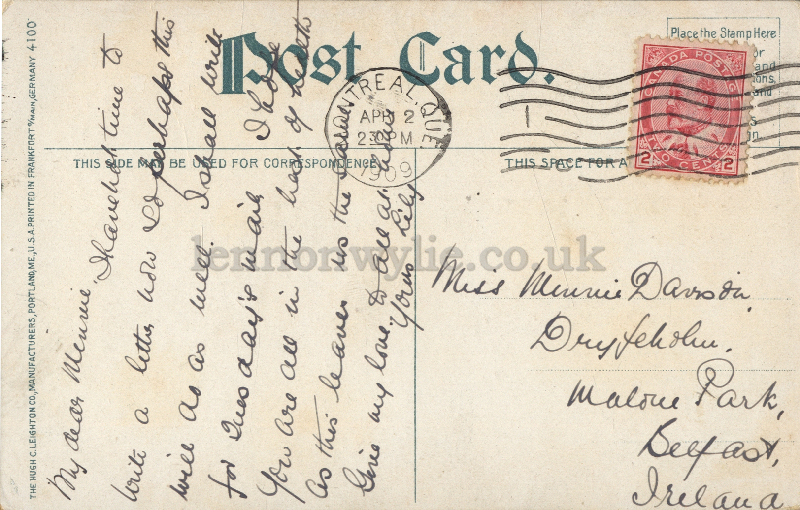 Post Card.
Place the Stamp Here
CANADA POSTAGE
2 TWO CENTS 2
MONTREAL, QUE.
APR 2
2 30 PM
1909
THIS SIDE MAY BE USED FOR CORRESPONDENCE
THIS SPACE FOR A
THE HUGH C. LEIGHTON CO., MANUFACTURERS, PORTLAND, ME., U.S.A. PRINTED IN FRANKFORT o/MAIN, GERMANY 4100
My dear Minnie, I have not time to
write a letter now so perhaps this
will do as well. I shall write
for Tuesday's mail. I hope
you are all in the best of health
as this leaves us the same
Give my love to all at home
Yours Lily
Miss Minnie Davison
Dryfeholm.
Malone Park,
Belfast,
Ireland
lennonwylie.co.uk